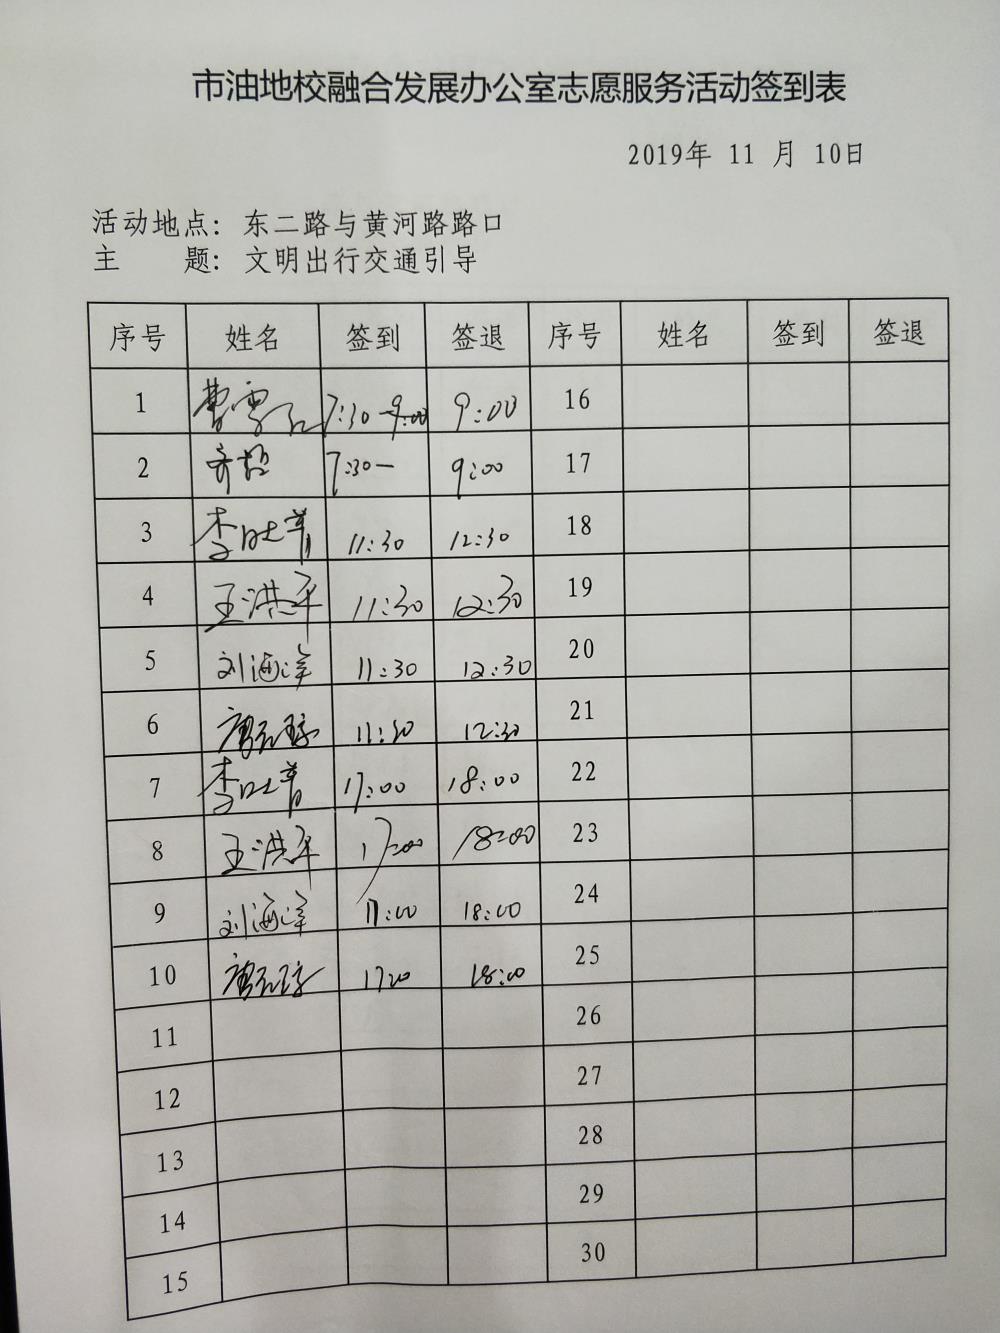 市油地校融合发展办公室志愿服务活动签到表
2019年 11 月 10日
活动地点: 东二路与黄河路路口
主 题: 文明出行交通引导
序号 姓名 签到 签退 序号 姓名 签到 签退
1 曹雪 7:30-9:00 9:00 16
2 齐超 7:30- 9:00 17
3 李 菁 11:30 12:30 18
4 王洪军 11:30 12:30 19
5 刘海洋 11:30 12:30 20
6 11:30 12:30 21
7 李 菁 17:00 18:00 22
8 王洪军 17:00 18:00 23
9 刘海洋 17:00 18:00 24
10 18:00 25
11 26
12 27
13 28
14 29
15 30